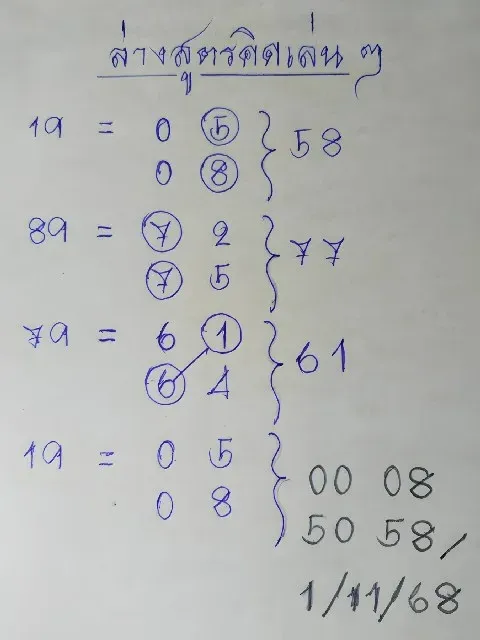 ล่างสูตรคิดเล่น ๆ
19 = 0 5
0 8 } 58
89 = 7 2
7 5 } 77
79 = 6 1
6 4 } 61
19 = 0 5
0 8 } 00 08
50 58/
1/11/68